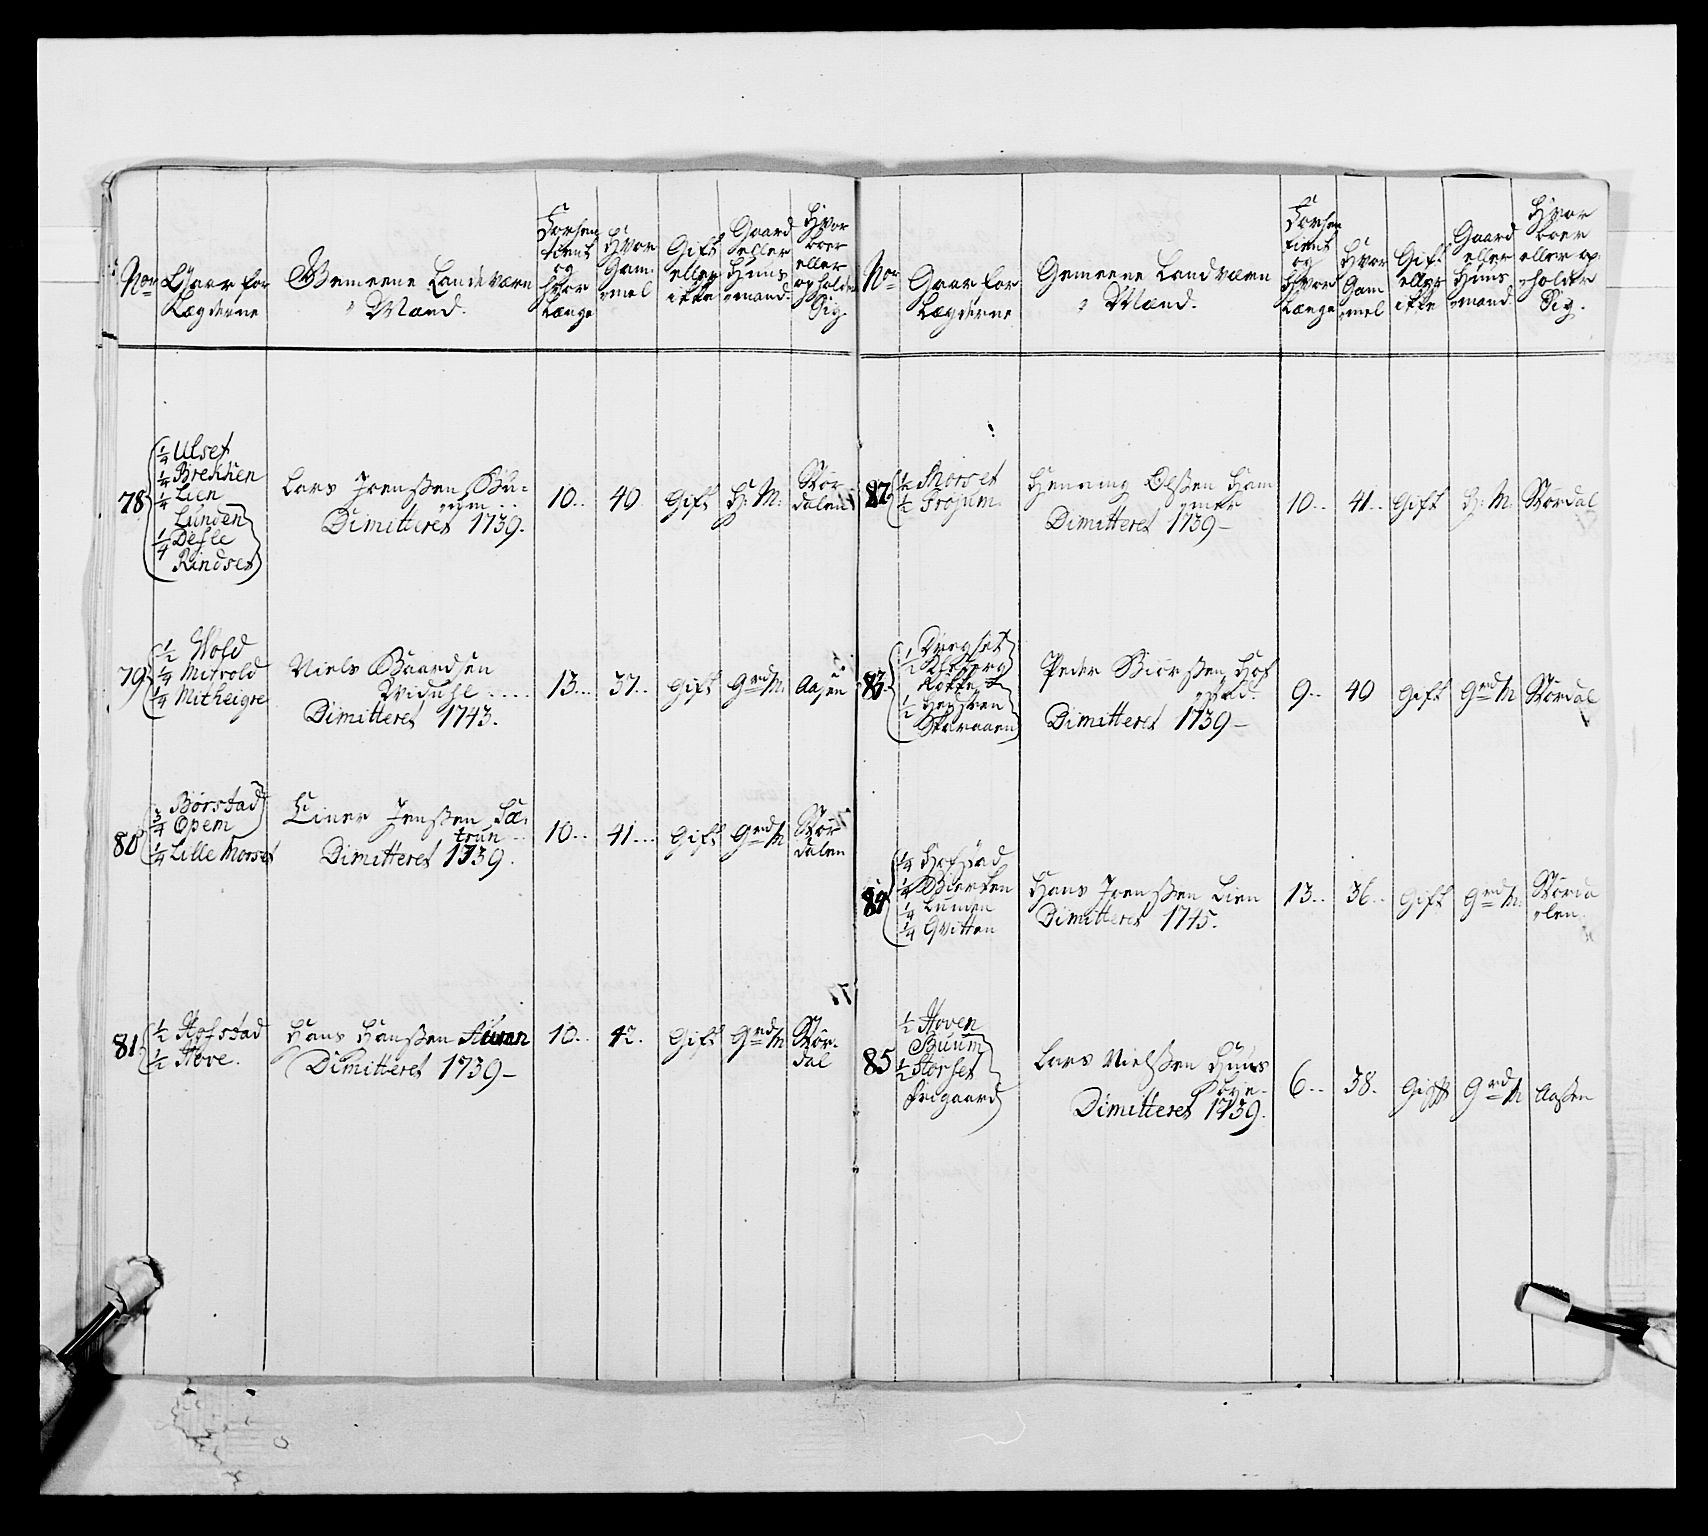 No
Gaar for
Lægderne
Gemeene Landeværn
Mænd.
Forhen
tient
og
hvor
Længe
Hvor
Gam-
mel
Gift
eller
ikke
Gaard
eller
Huus
mand.
Hvor
boer
eller
opholder
Sig
78
1/4 Ulset
1/4 Brekken
1/4 Lien
Lunden
1/4 Defle
Rindset
Lars Joenssen Bu-
rum
Dimitteret 1739.
10..
40
Gift
H: M:
Stør
dalen
79
1/2 Wold
1/4 Mitvold
1/4 Mitheigre
Niels Baardsen
Dimitteret 1743.
13...
37..
Gift
Grd M:
Aasen
80
Børstad
3/4 Opem
1/4 Lille Morset
Einer Jenssen Sæ-
trun
Dimitteret 1739.
10..
41...
Gift
Grd M
Stør
dalen
81
1/2 Hofstad
1/2 Hove.
Hans Hanssen Auran
Dimitteret 1739-
10..
42.
Gift
Grd M
Stør-
dal
No
Gaar for
Lægderne
Gemeene Landværn
Mænd.
Forhen
tient
og
hvor
Længe
Hvor
Gam
mel
Gift
eller
ikke
Gaard
eller
Huus
mand
Hvor
boer
eller op
holder
Sig.
82
1/2 Morset
1/2 Frojum
Henning Olssen Ham
mer
Dimitteret 1739-
10..
41..
Gift
H: M:
Størdal
83
1/2 Dregset
Kleberg
Røkke
1/2
Skaraaen
Peder Biørssen Hof
stad.
Dimitteret 1739-
9..
40
Gift
Grd M
Størdal
84
1/4 Hofstad
1/4 Bierken
1/4 Lunden
1/4 Qvitten
Hans Joenssen Lien
Dimitteret 1745.
13..
36..
Gift
Grd M:
Størda
len.
85
1/2 Hoven
Buum
1/2 Storset
Frigaard
Lars Nielssen Huus
bye-
Dimitteret 1739.
6..
38.
Gift
Grd M
Aassen